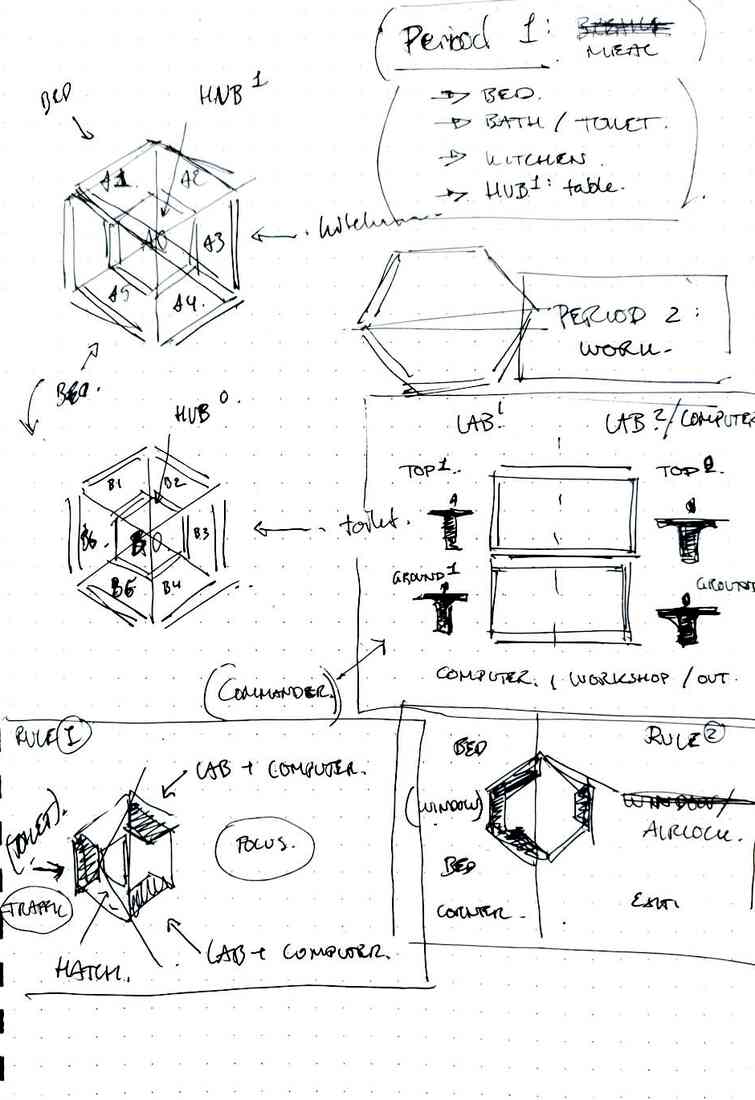 Period 1:
MEAL
→ BED.
→ BATH / TOILET.
→ KITCHEN.
→ HUB¹: table.
BED
HUB¹
A1
A2
A0
A3
A5
A4
kitchen
BED.
PERIOD 2:
WORK.
HUB⁰
B1
B2
B6.
B0
B3
B5
B4
toilet.
LAB¹
LAB²/COMPUTER
TOP¹.
TOP².
GROUND¹
GROUND
COMPUTER. / WORKSHOP / OUT.
(COMMANDER.)
RULE 1
LAB + COMPUTER.
(TOILET).
FOCUS.
TRAFFIC
HATCH.
LAB + COMPUTER.
RULE 2
BED
(WINDOW)
WINDOW/
AIRLOCK.
BED
CORNER.
EXIT.